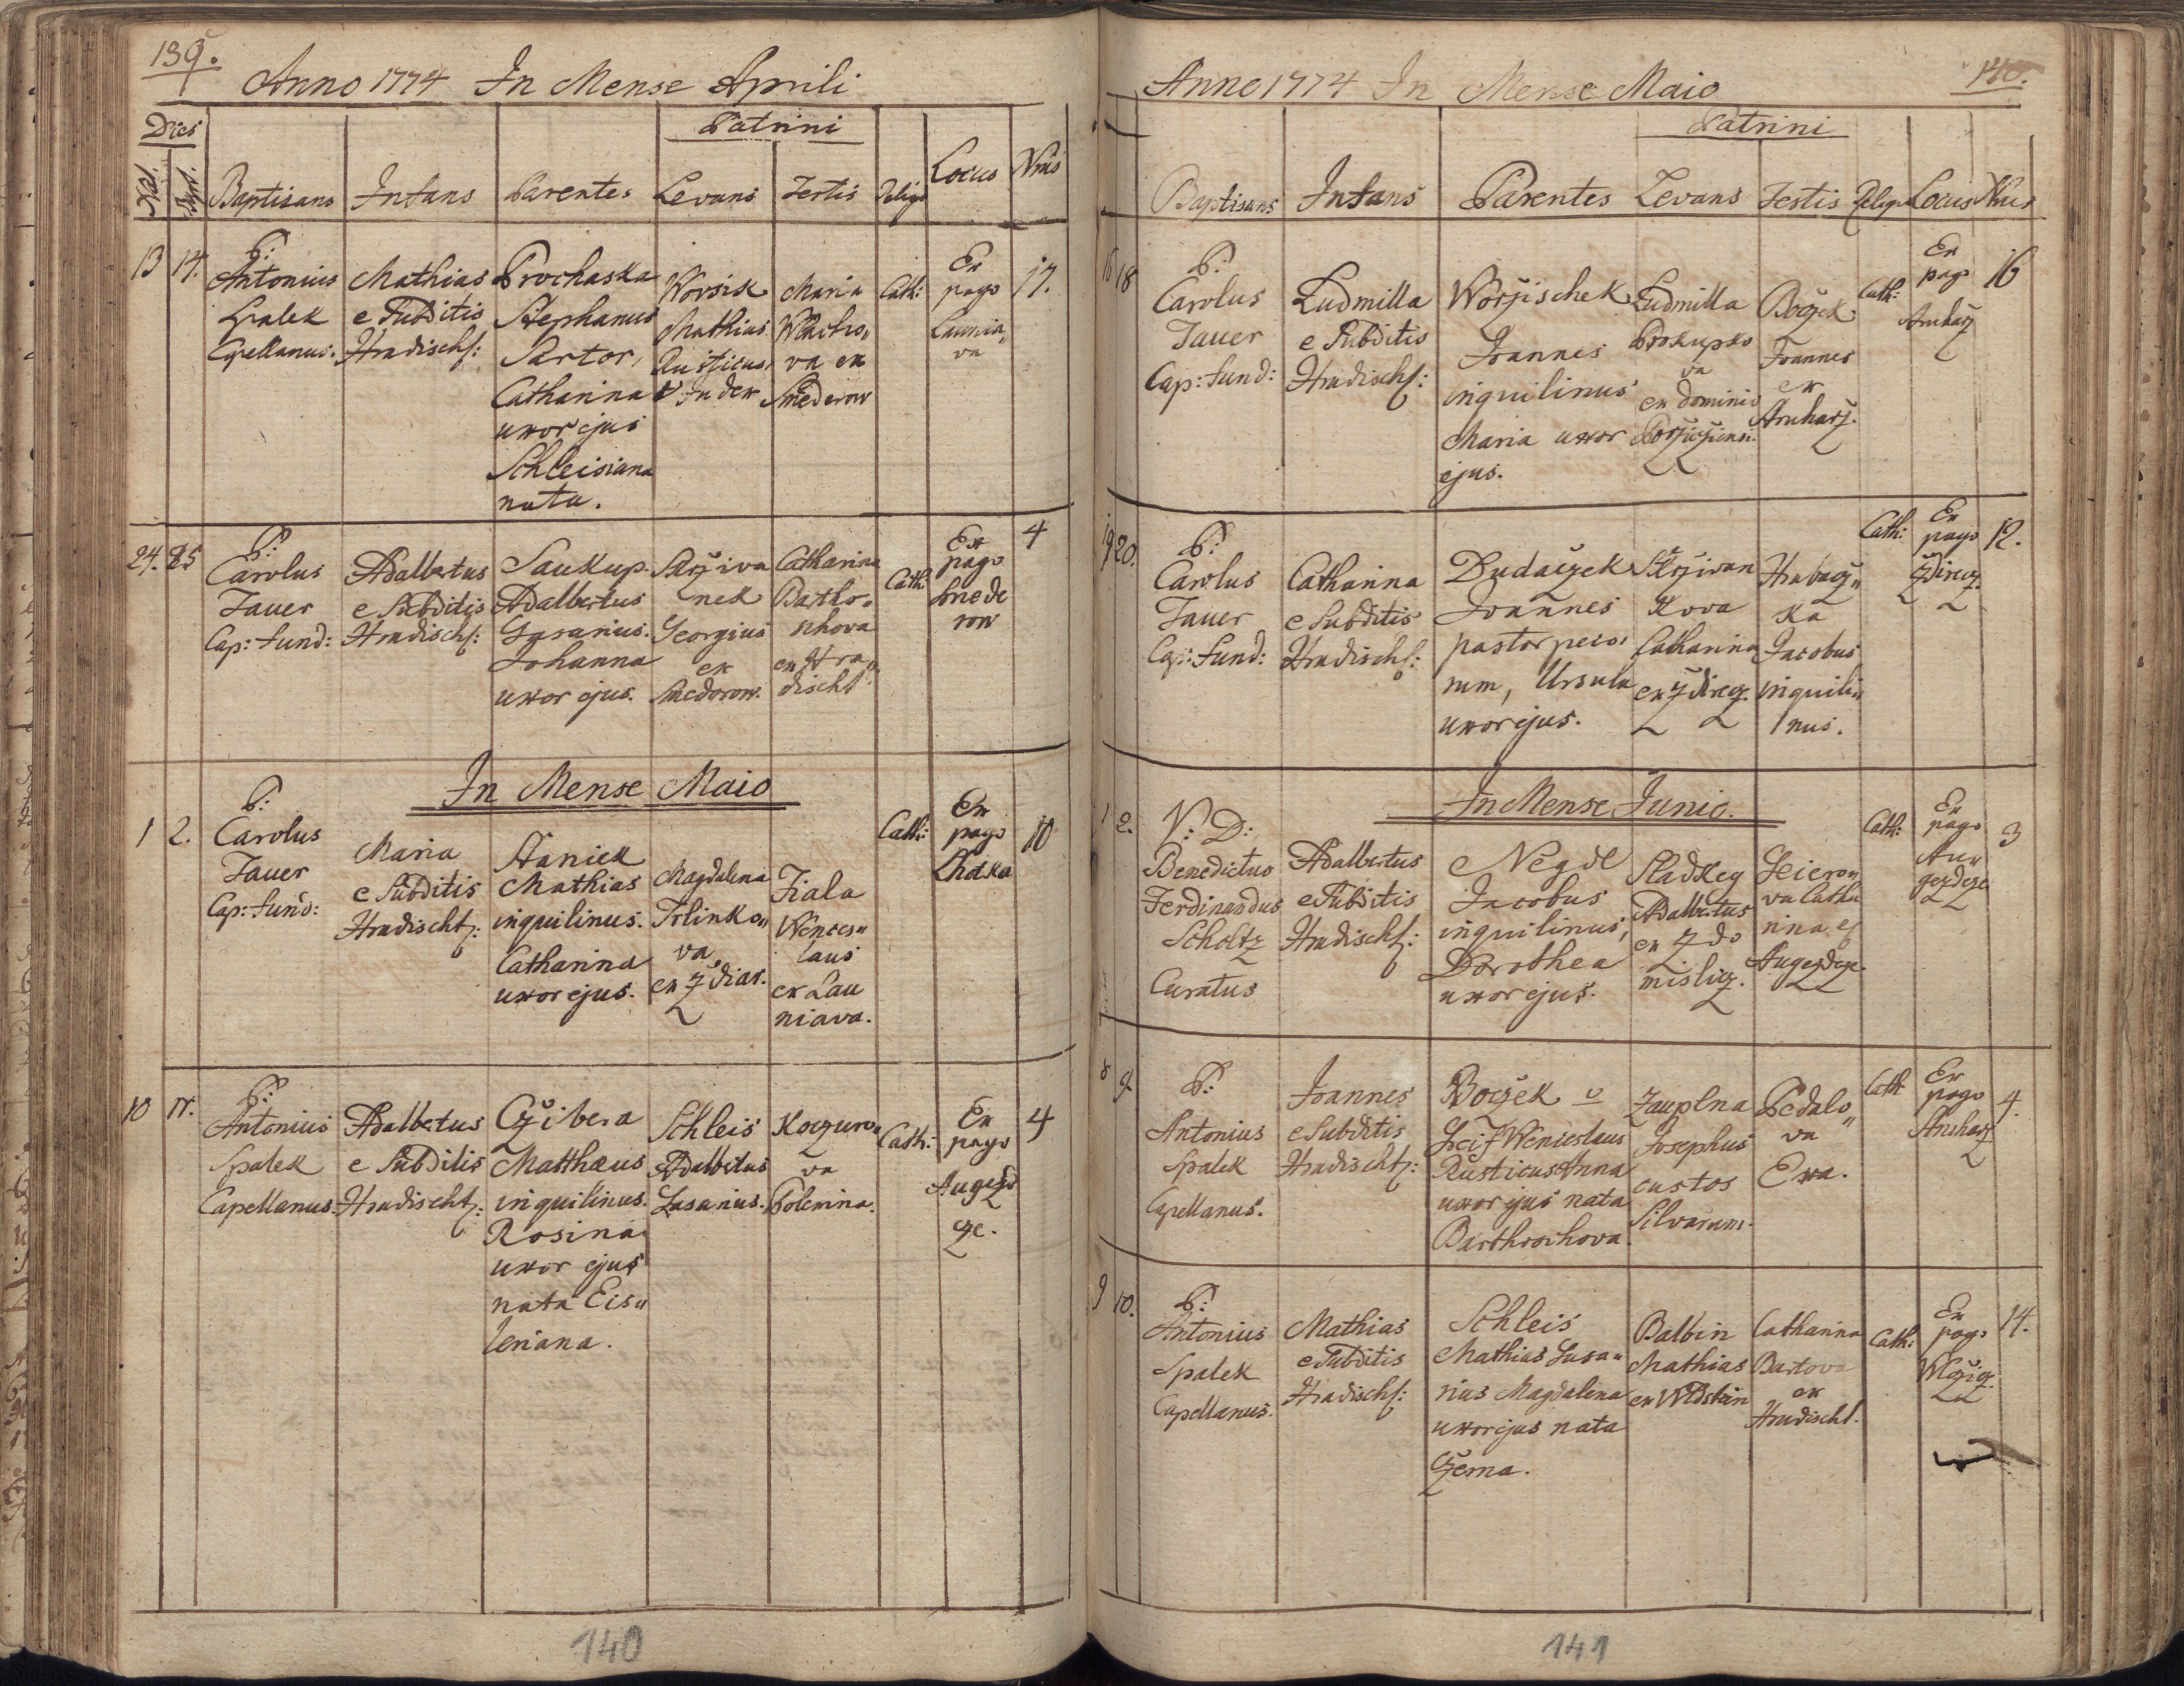 139.
Anno 1774 In Mense Aprili
Dies
Patrini
Nat.
Bapt.
Baptisans Infans Parentes Levans Testis Relig: Locus Nrus
13 14.
P:
Antonius
Spalek
Capellanus.
Mathias
e Subditis
Hradischt:
Prochaska
Stephanus
Sartor,
Catharina
uxor ejus
Schleisiana
nata.
Worsisk
Mathias
Rusticus
Maria
va ex
Smederow
Cath:
Ex
pago
Launia„
va
17.
24. 25
P:
Carolus
Jauer
Cap: fund:
Adalbertus
e Subditis
Hradischt:
Saukup.
Adalbertus
Johanna
uxor ejus.
Skrziva
nek
Georgius
ex
Smedorow.
Catharina
Bartho„
schova
ex Hra„
discht
Cath:
Ex
pago
Smede
row
4
In Mense Maio
1 2.
P:
Carolus
Jauer
Cap: fund:
Maria
e Subditis
Hradischt:
Staniek
Mathias
inquilinus.
Catharina
uxor ejus.
Magdalena
Trlinko„
va
ex Zdiar.
Fiala
Wences„
laus
ex Lau
niava.
Cath:
Ex
pago
Lhotka
10
10 11.
P:
Antonius
Spalek
Capellanus.
Adalbertus
e Subditis
Hradischt:
Czibera
Matthæus
inquilinus.
Rosina
uxor ejus
nata Eis„
leriana.
Schleis
Adalbertus
Lusanius.
Koczuro„
va
Polenina.
Cath:
Ex
pago
Augezd
cze.
4
140
140.
Anno 1774 In Mense Maio
Patrini
Baptisans Infans Parentes Levans Testis Relig: Locus Nrus
16 18
P:
Carolus
Jauer
Cap: fund:
Ludmilla
e Subditis
Hradischt:
Worzischek
Joannes
inquilinus
Maria uxor
ejus.
Ludmilla
Prokupko
va
ex dominio
Boczek
Joannes
ex
Struharz.
Cath:
Ex
pago
Struharz
16
19 20.
P:
Carolus
Jauer
Cap: fund:
Catharina
e Subditis
Hradischt:
Dudaczek
Joannes
pastor peco„
rum, Ursula
uxor ejus.
Skrziwan
kova
Catharina
ex Zdirez.
Hrabacz„
ka
Jacobus
inquili„
nus.
Cath:
Ex
pago
Zdirez.
12.
In Mense Junio.
1 2.
V: D:
Benedictus
Ferdinandus
Scholtz
Curatus
Adalbertus
e Subditis
Hradischt:
Negdl
Jacobus
inquilinus,
Dorothea
uxor ejus.
Sladkey
Adalbertus
ex Zdo
mislicz.
Heiero„
va Catha
rina ex
Augezdcze.
Cath:
Ex
pago
Au„
gezdcze
3
8 9.
P:
Antonius
Spalek
Capellanus.
Joannes
e Subditis
Hradischt:
Boczek v
Wenceslaus
Rusticus Anna
uxor ejus nata
Barthoschova.
Zauplna
Josephus
custos
Silvarum.
Pedalo„
va
Eva.
Cath
Ex
pago
Struharz
4.
9 10.
P:
Antonius
Spalek
Capellanus.
Mathias
e Subditis
Hradischt:
Schleis
Mathias Lusa„
nius Magdalena
uxor ejus nata
Czerna.
Balbin
Mathias
ex Wldstein
Catharina
Bartova
ex
Hradischt.
Cath:
Ex
pago
Wlczicz.
14.
141